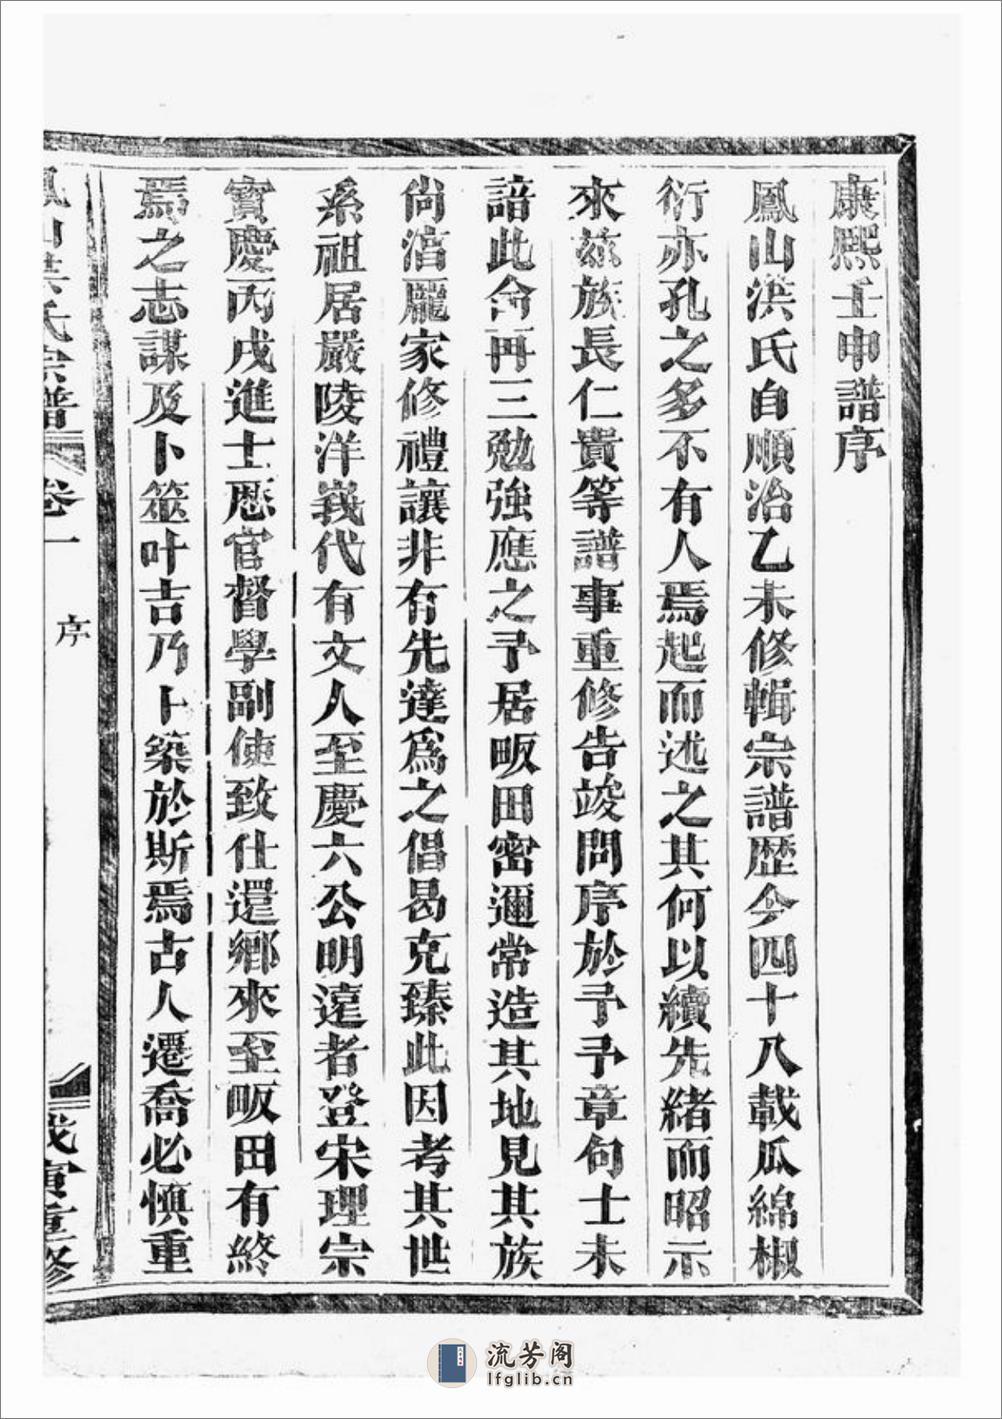 康熙壬申譜序
鳳山洪氏自順治乙未修輯宗譜歴今四十八載瓜綿椒
衍亦孔之多不有人焉起而述之其何以續先緒而昭示
來茲族長仁貴等譜事重修告竣問序於予予章句士未
諳此倉再三勉強應之予居畈田密邇常造其地見其族
尚湻龎家修禮讓非有先達爲之倡曷克臻此因考其世
系祖居嚴陵洋峩代有文人至慶六公明遠者登宋理宗
寳慶丙戌進士厯官督學副使致仕還鄉來至畈田有終
焉之志謀及卜筮叶吉乃卜築於斯焉古人遷喬必慎重
鳳山洪氏宗譜 卷一 序 戊寅重修
流芳阁
lfglib.cn